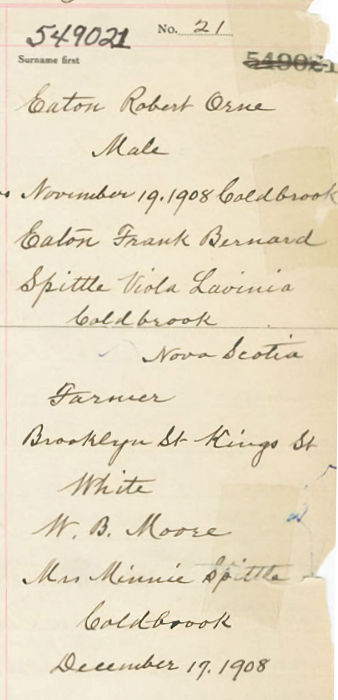 549021
No. 21
Surname first
549021
Eaton Robert Orne
Male
November 19.1908 Coldbrook
Eaton Frank Bernard
Spittle Viola Lavinia
Coldbrook
Nova Scotia
Farmer
Brooklyn St Kings St
White
W. B. Moore
Mrs Minnie Spittle
Coldbrook
December 17.1908